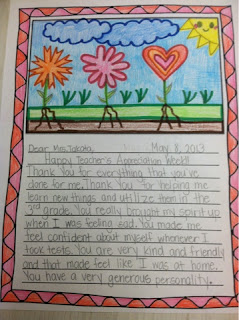 Dear Mrs. Takata, May 8, 2013
Happy Teacher's Appreciation Week!!
Thank you for everything that you've
done for me. Thank you for helping me
learn new things and utilize them in the
3rd grade. You really brought my spirit up
when I was feeling sad. You made me
feel confident about myself whenever I
took tests. You are very kind and friendly
and that made feel like I was at home.
You have a very generous personality.